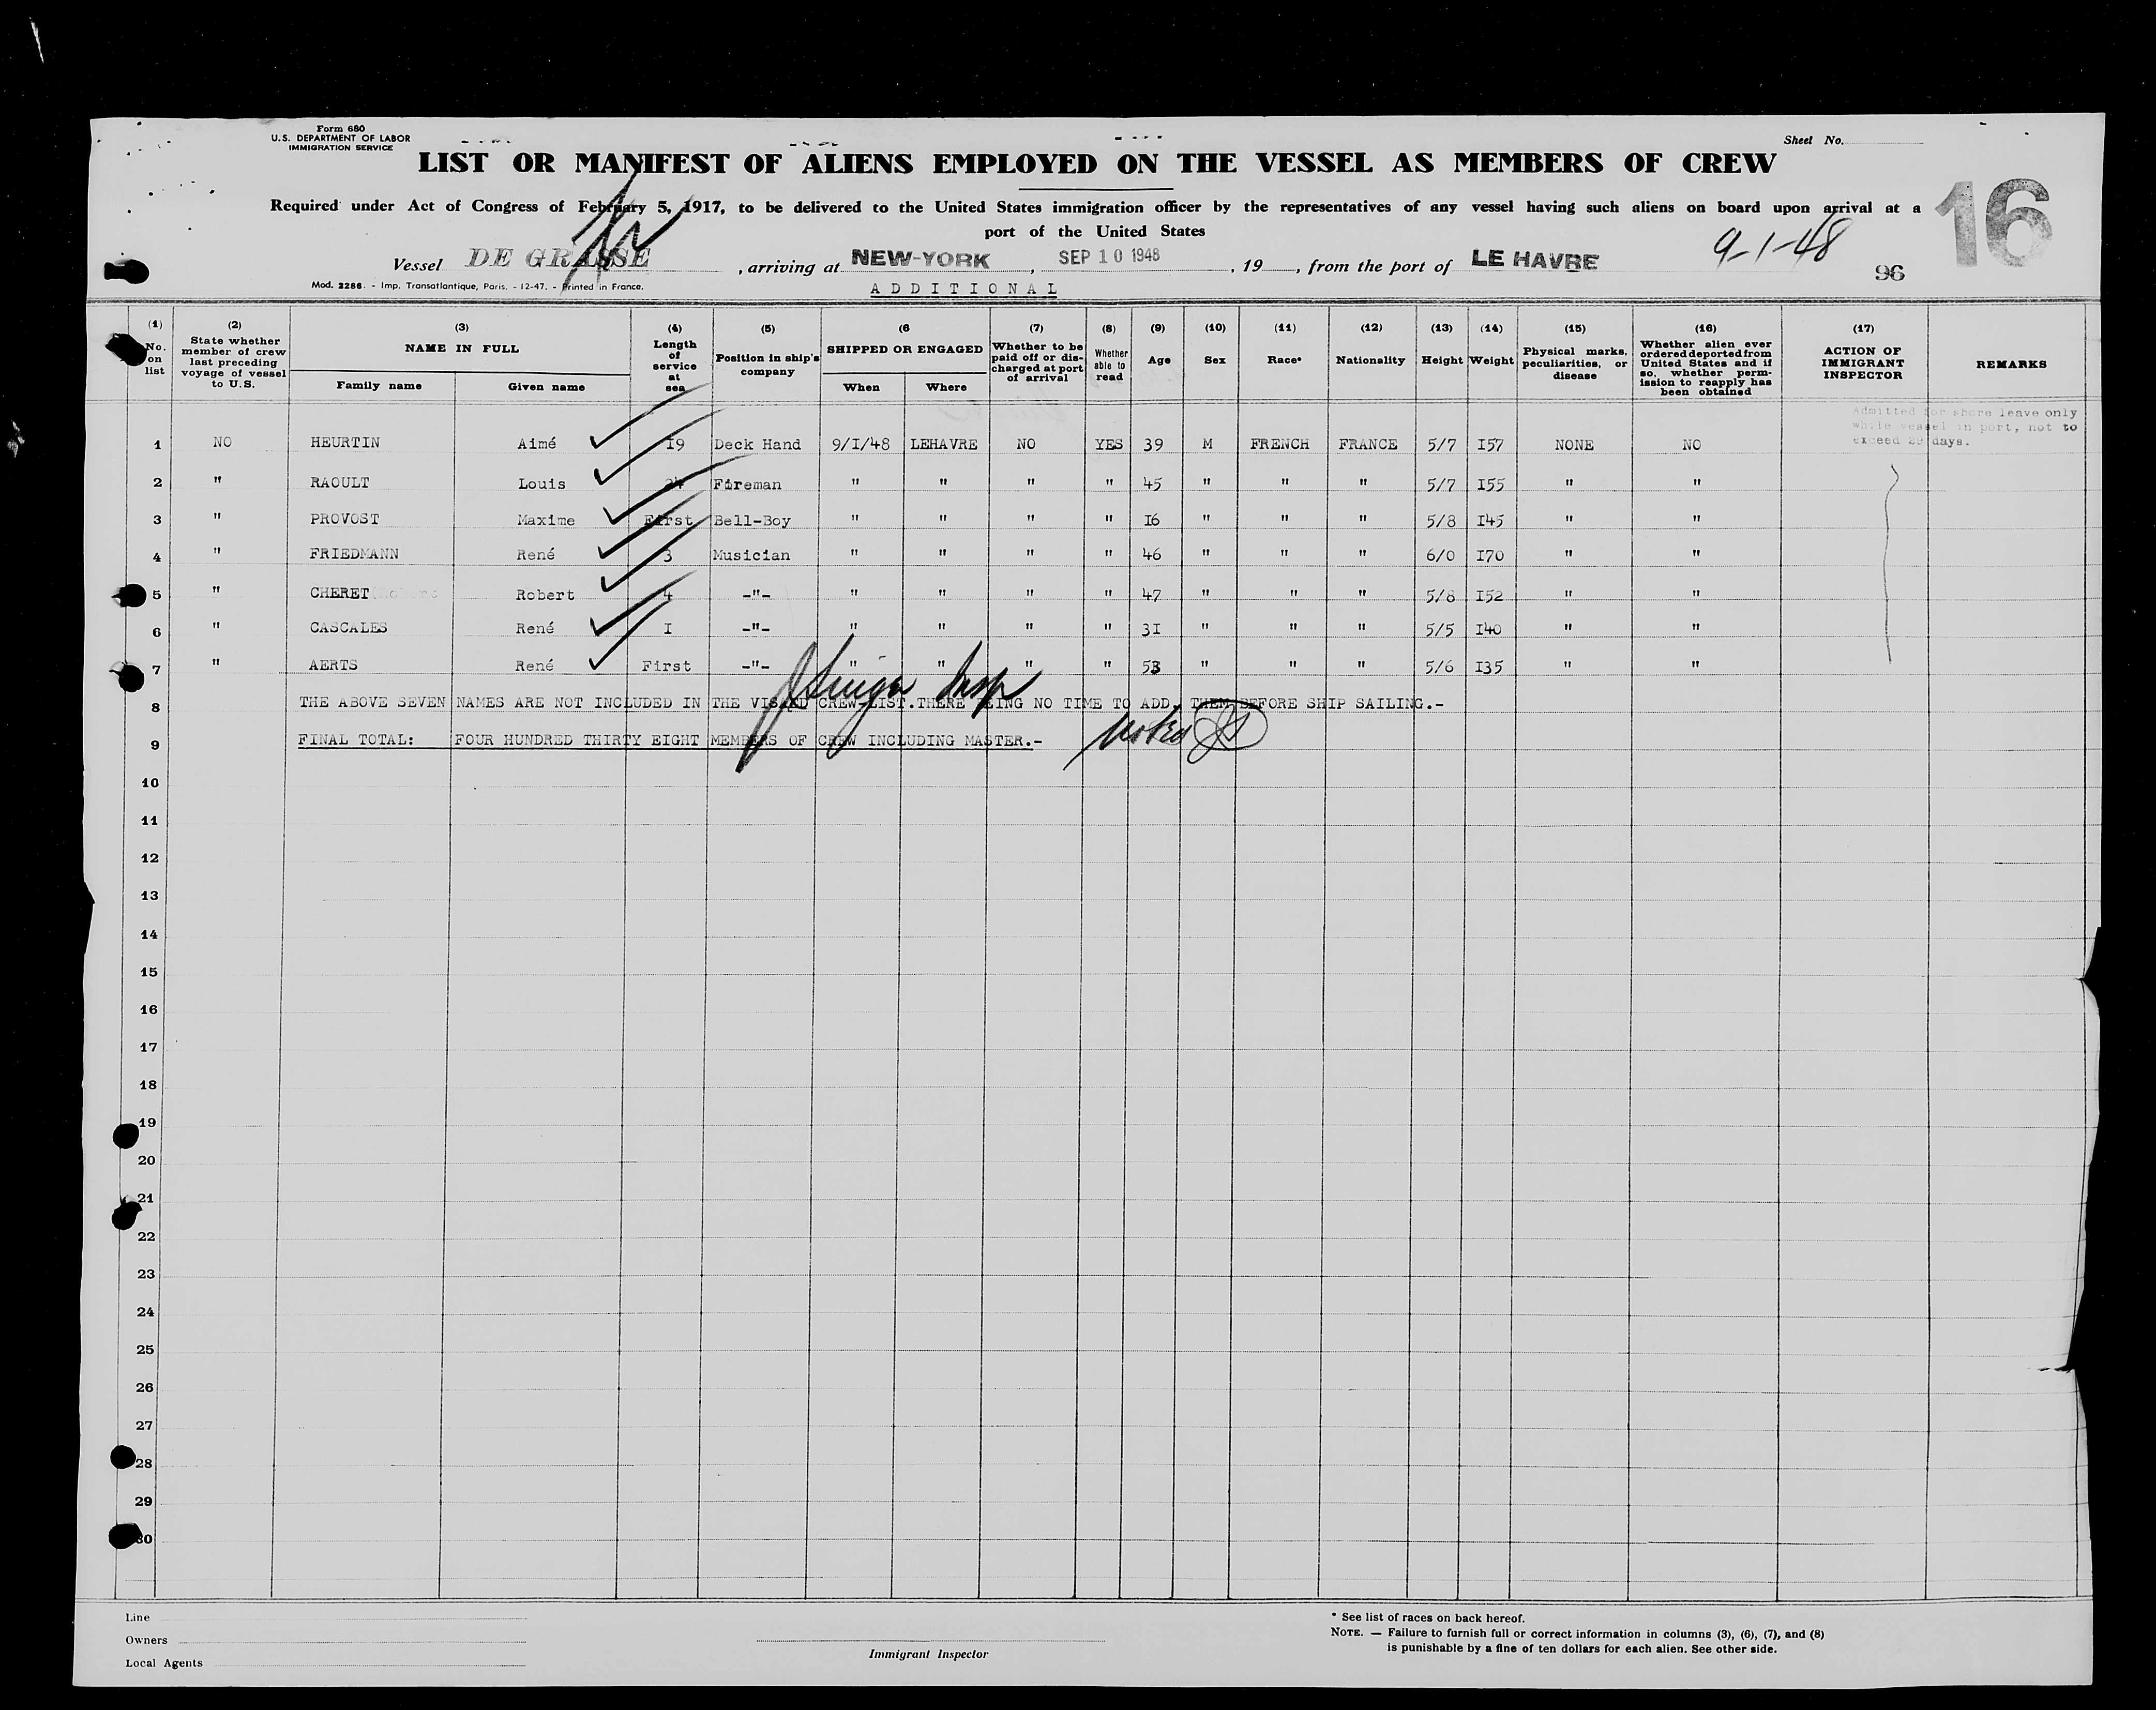 Form 680
U.S. DEPARTMENT OF LABOR
IMMIGRATION SERVICE
Sheet No.
LIST OR MANIFEST OF ALIENS EMPLOYED ON THE VESSEL AS MEMBERS OF CREW
16
Required under Act of Congress of February 5, 1917, to be delivered to the United States immigration officer by the representatives of any vessel having such aliens on board upon arrival at a
port of the United States
9-1-48
Vessel DE GRASSE , arriving at NEW-YORK , SEP 10 1948 , 19 , from the port of LE HAVRE
96
Mod. 2286. - Imp. Transatlantique, Paris. - 12-47. - Printed in France.
ADDITIONAL
(1) No. on list
(2) State whether member of crew last preceding voyage of vessel to U.S.
(3) NAME IN FULL Family name Given name
(4) Length of service at sea
(5) Position in ship's company
(6 SHIPPED OR ENGAGED When Where
(7) Whether to be paid off or discharged at port of arrival
(8) Whether able to read
(9) Age
(10) Sex
(11) Race*
(12) Nationality
(13) Height
(14) Weight
(15) Physical marks, peculiarities, or disease
(16) Whether alien ever ordered deported from United States and if so, whether permission to reapply has been obtained
(17) ACTION OF IMMIGRANT INSPECTOR
REMARKS
Admitted for shore leave only
while vessel in port, not to
exceed 29 days.
1 NO HEURTIN Aimé 19 Deck Hand 9/1/48 LEHAVRE NO YES 39 M FRENCH FRANCE 5/7 157 NONE NO
2 " RAOULT Louis Fireman " " " " 45 " " " 5/7 155 " "
3 " PROVOST Maxime First Bell-Boy " " " " 16 " " " 5/8 145 " "
4 " FRIEDMANN René 3 Musician " " " " 46 " " " 6/0 170 " "
5 " CHERET Robert 4 -"- " " " " 47 " " " 5/8 152 " "
6 " CASCALES René I -"- " " " " 31 " " " 5/5 140 " "
7 " AERTS René First -"- " " " " 53 " " " 5/6 135 " "
8 THE ABOVE SEVEN NAMES ARE NOT INCLUDED IN THE VISAED CREW-LIST.THERE BEING NO TIME TO ADD THEM BEFORE SHIP SAILING.-
9 FINAL TOTAL: FOUR HUNDRED THIRTY EIGHT MEMBERS OF CREW INCLUDING MASTER.-
10
11
12
13
14
15
16
17
18
19
20
21
22
23
24
25
26
27
28
29
30
Line
Owners
Local Agents
Immigrant Inspector
* See list of races on back hereof.
NOTE. — Failure to furnish full or correct information in columns (3), (6), (7), and (8)
is punishable by a fine of ten dollars for each alien. See other side.